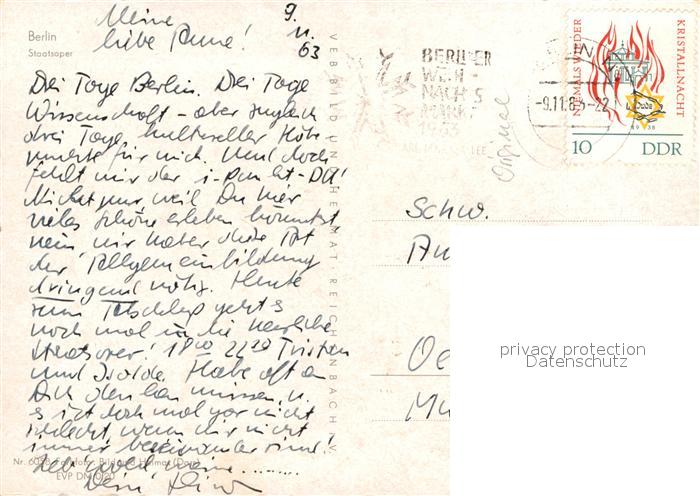 Berlin
Staatsoper
Meine
liebe
9.
11
63
Drei Tage Berlin. Drei Tage
Wissenschaft – aber zugleich
drei Tage kultureller Höhe-
punkte für mich. Und doch
fehlt mir der i-Punkt – DU!
Nicht nur weil Du hier
vieles Schöne erleben könntest
nein mir
der Allgemeinbildung
dringend nötig. Heute
zum geht es
noch mal in die herrliche
Staatsoper! 18 22 Tristan
und Isolde. Habe oft an
Dich denken müssen u.
es ist doch mal gar nicht
schlecht, wenn wir nicht
immer beieinander sind!
Dein
Nr. 6
EVP DM 0,20
VEB BILD UND HEIMAT REICHENBACH I. V.
BERLINER
WEIH
NACHTS
MARKT
1963
Original
-9.11.63-22
NIEMALS WIEDER
KRISTALLNACHT
Jude
1938
10 DDR
Schw.
Oe
privacy protection
Datenschutz